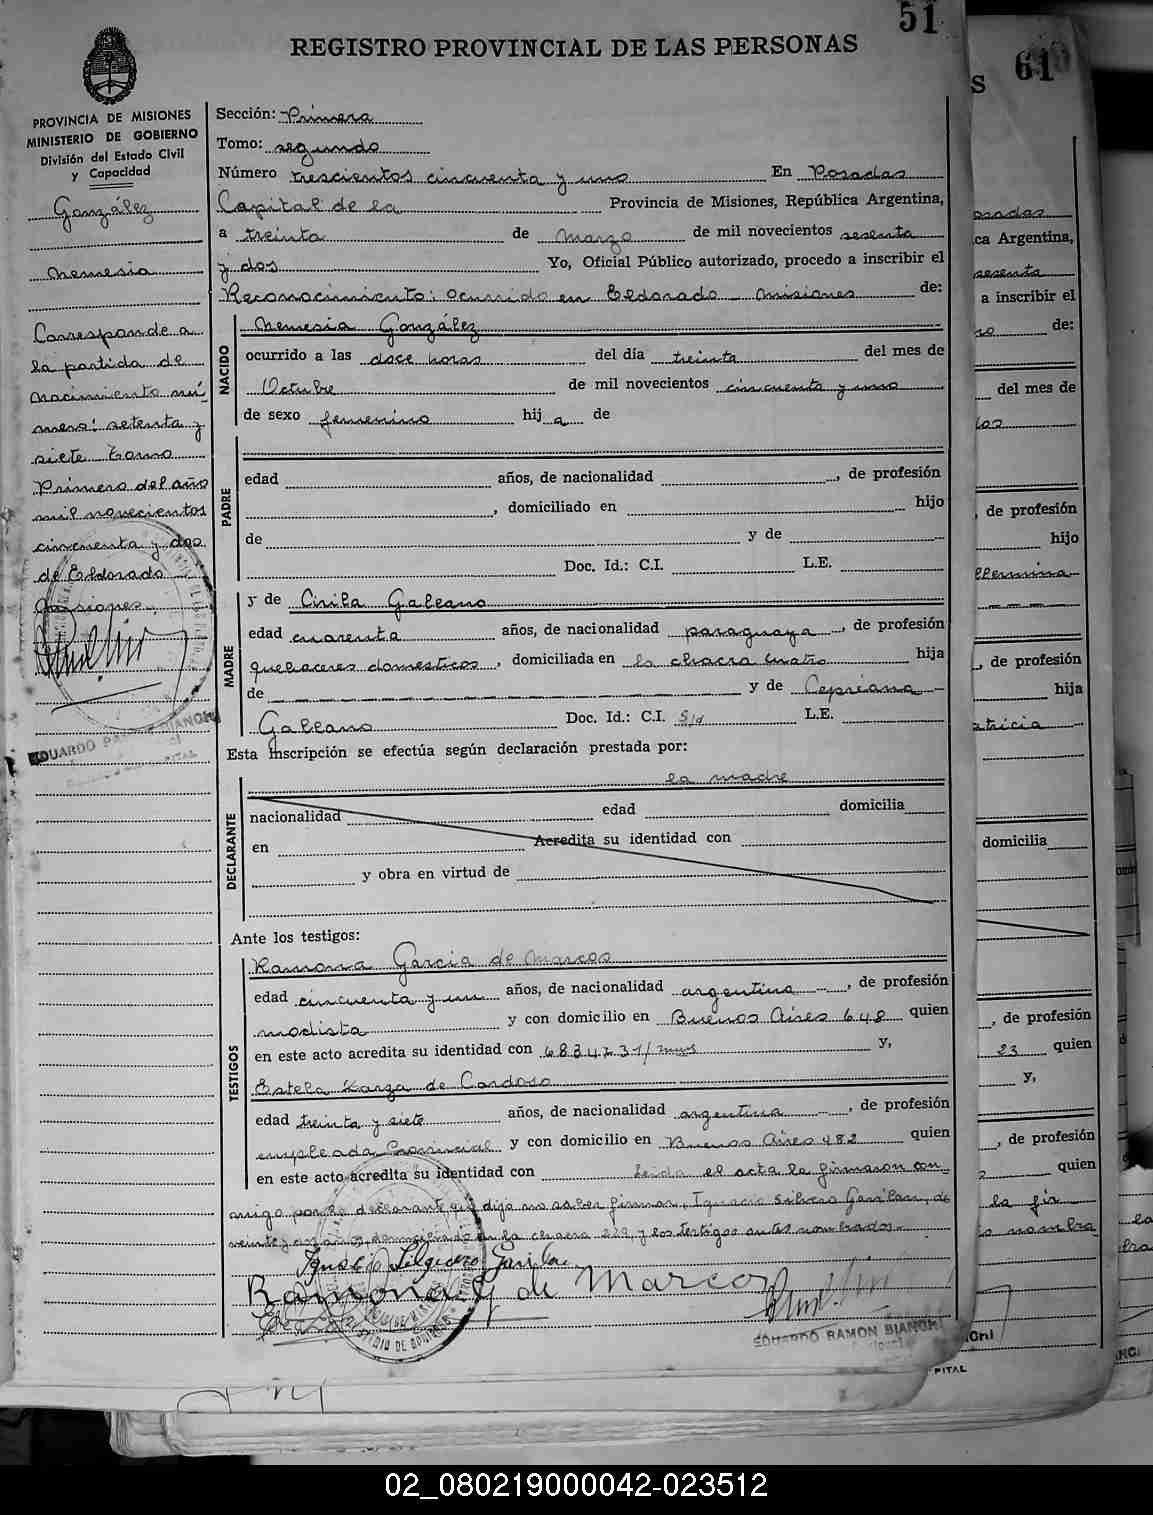 51
REGISTRO PROVINCIAL DE LAS PERSONAS
PROVINCIA DE MISIONES
MINISTERIO DE GOBIERNO
División del Estado Civil
y Capacidad
González
Nemesia
Corresponde a
la partida de
Nacimiento nú-
mero: setenta y
siete Tomo
Primero del año
mil novecientos
cincuenta y dos
de Eldorado
Misiones.
EDUARDO RAMON BIANCHI
Sección: Primera
Tomo: segundo
Número trescientos cincuenta y uno En Posadas
Capital de la Provincia de Misiones, República Argentina,
a treinta de Marzo de mil novecientos sesenta
y dos Yo, Oficial Público autorizado, procedo a inscribir el
Reconocimiento: ocurrido en Eldorado - Misiones de:
NACIDO
Nemesia González
ocurrido a las doce horas del día treinta del mes de
Octubre de mil novecientos cincuenta y uno
de sexo femenino hij a de
PADRE
edad años, de nacionalidad , de profesión
, domiciliado en hijo
de y de
Doc. Id.: C.I. L.E.
MADRE
y de Cirila Galeano
edad cuarenta años, de nacionalidad paraguaya , de profesión
quehaceres domesticos , domiciliada en la chacra cuatro hija
de y de Cepriana
Galeano Doc. Id.: C.I. S/d L.E.
Esta inscripción se efectúa según declaración prestada por:
la madre
DECLARANTE
nacionalidad edad domicilia
en Acredita su identidad con
y obra en virtud de
Ante los testigos:
TESTIGOS
Ramona Garcia de Marcos
edad cincuenta y un años, de nacionalidad argentina , de profesión
modista y con domicilio en Buenos Aires 648 quien
en este acto acredita su identidad con y,
Estela Karza de Cardoso
edad treinta y siete años, de nacionalidad argentina , de profesión
empleada Provincial y con domicilio en Buenos Aires 482 quien
en este acto acredita su identidad con Leida el acta la firmaron con
migo por la declarante que dijo no saber firmar, Ignacio Silvero Garilan, de
veinte y años, domiciliado en la chacra 222, y los testigos antes nombrados.
Ramona G de Marcos
EDUARDO RAMON BIANCHI
61
S
osadas
ca Argentina,
sesenta
a inscribir el
de:
del mes de
, de profesión
hijo
, de profesión
hija
atricia
domicilia
, de profesión
23 quien
y,
, de profesión
quien
la fir
nombra
PITAL
02_080219000042-023512